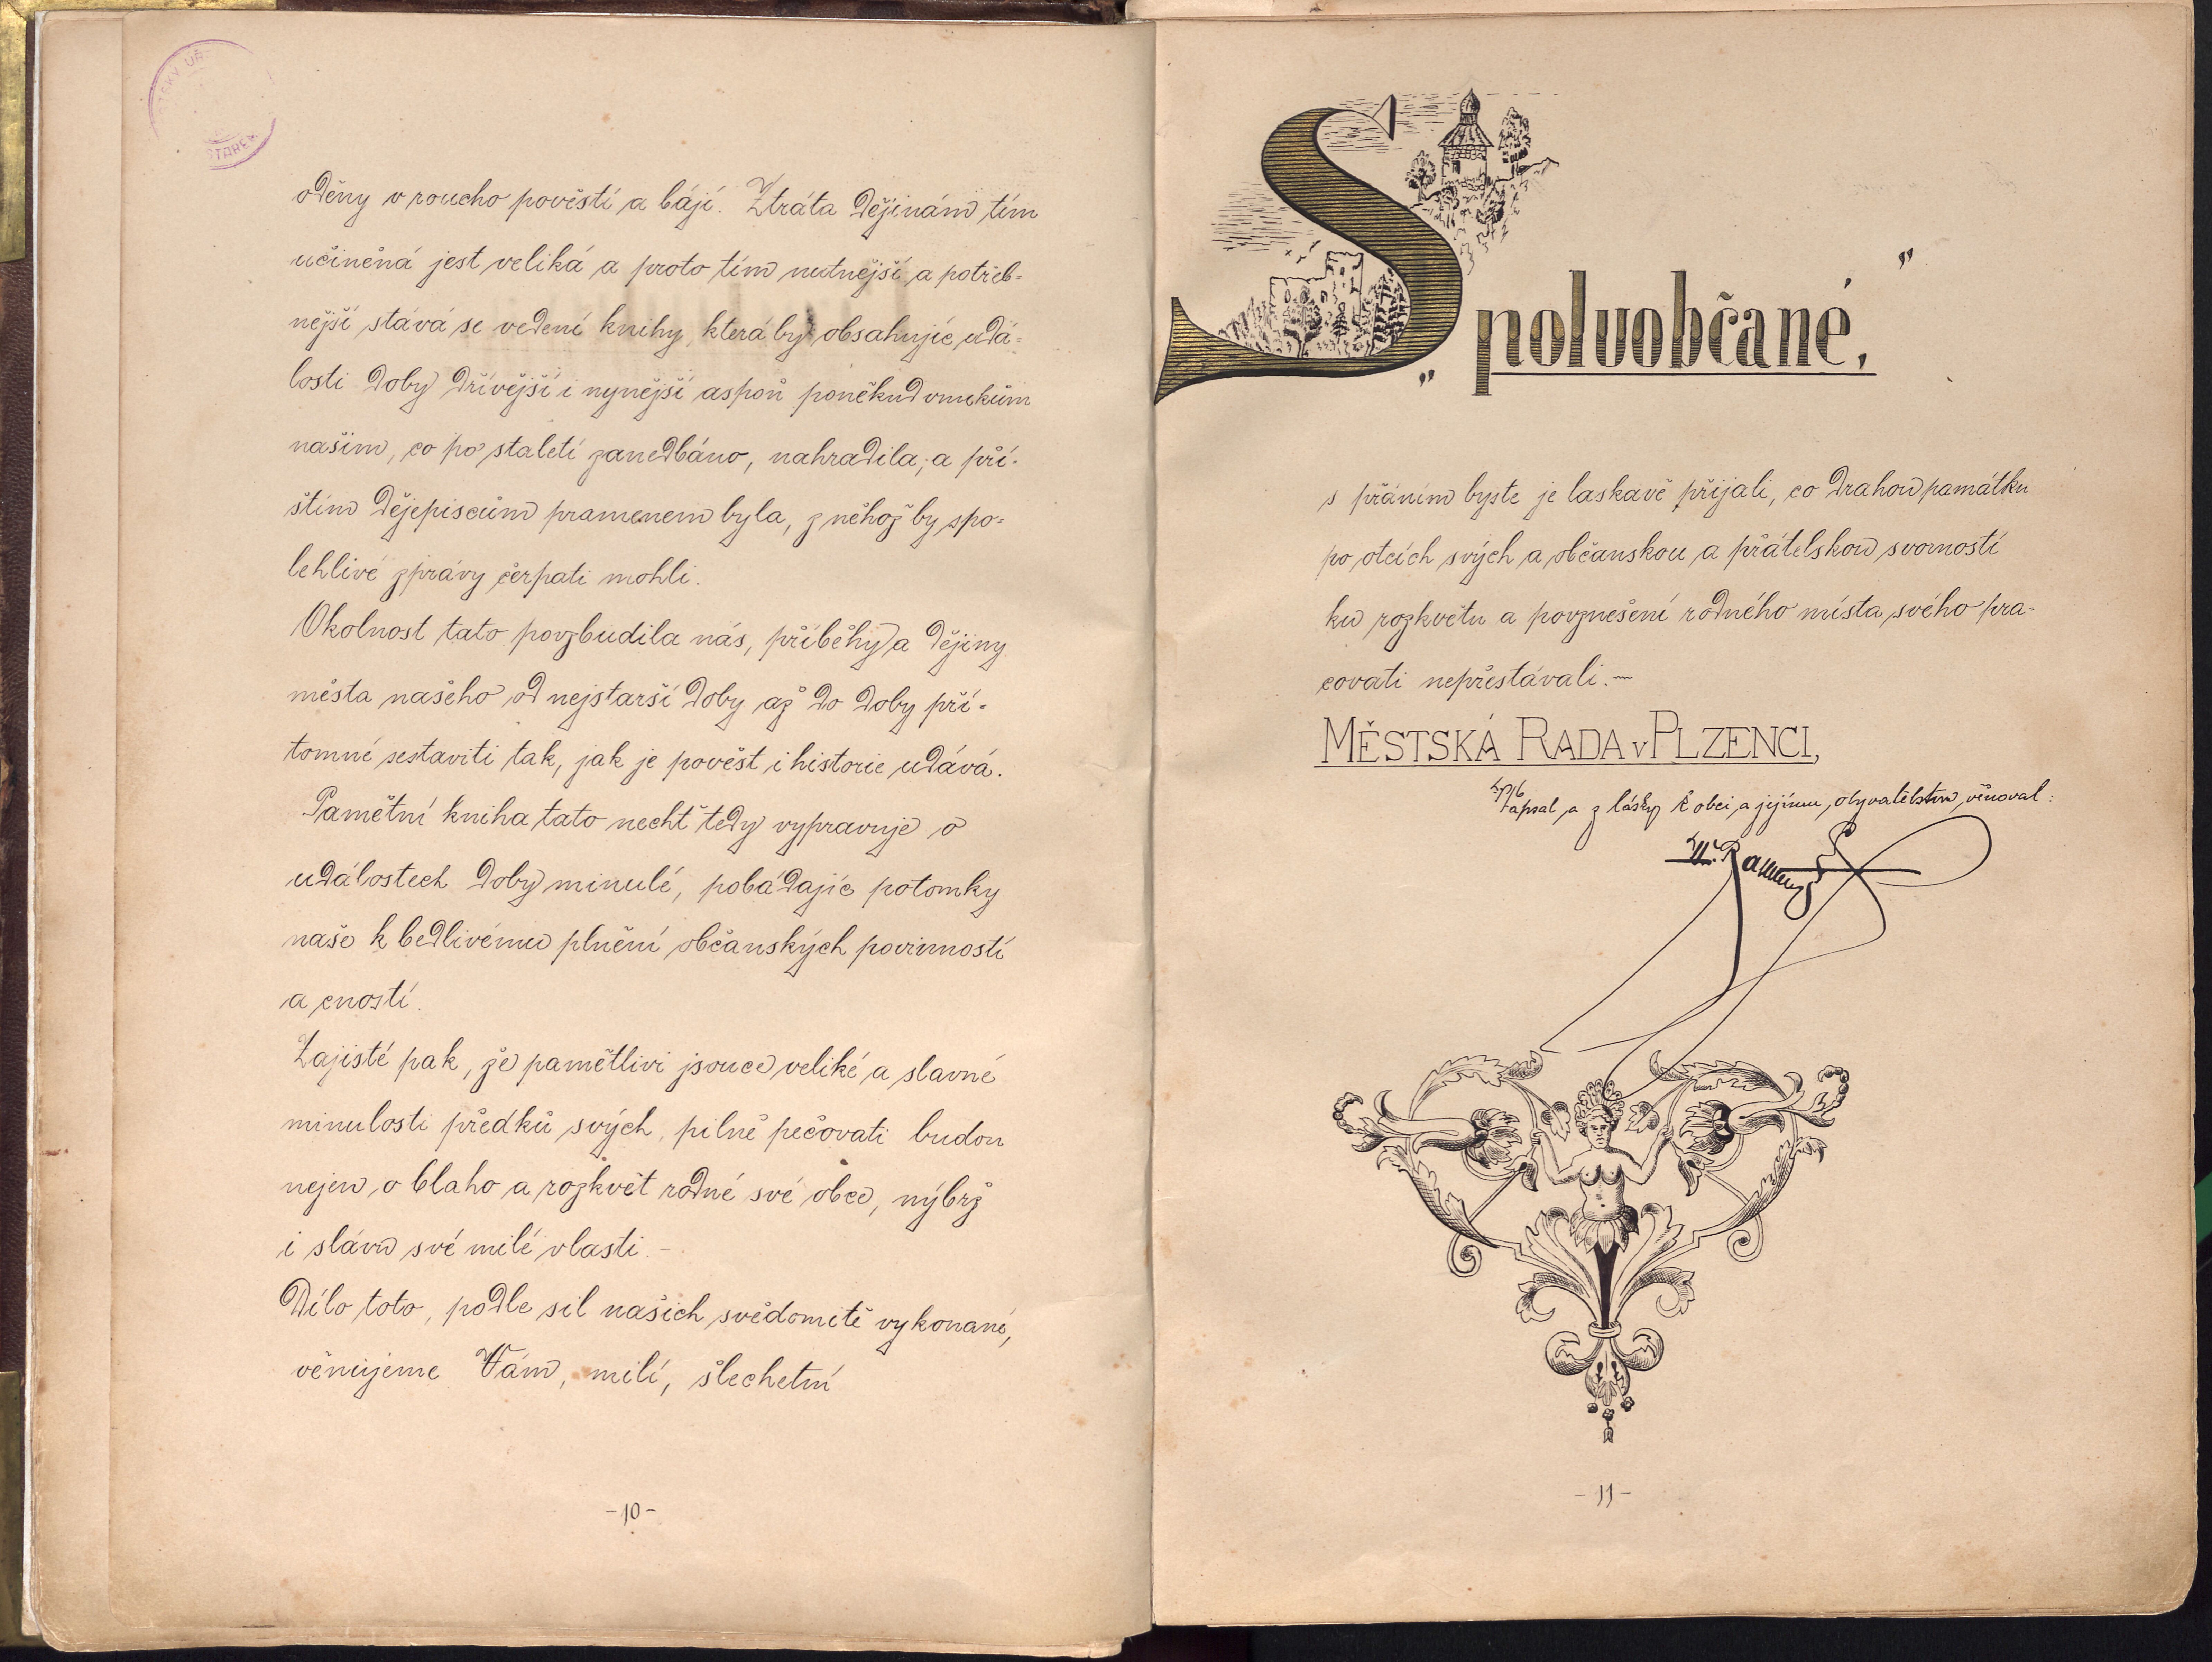 oděny v roucho pověstí a bájí. Ztráta dějinám tím
učiněná jest veliká a proto tím nutnější a potřeb-
nější stává se vedení knihy, která by obsahujíc udá-
losti doby dřívější i nynější aspoň poněkud vnukům
našim, co po staletí zanedbáno, nahradila, a pří-
štím dějepiscům pramenem byla, z něhož by spo-
lehlivé zprávy čerpati mohli.
Okolnost tato povzbudila nás, příběhy a dějiny
města našeho od nejstarší doby až do doby pří-
tomné sestaviti tak, jak je pověst i historie udává.
Pamětní kniha tato nechť tedy vypravuje o
událostech doby minulé, pobádajíc potomky
naše k bedlivému plnění občanských povinností
a cností.
Zajisté pak, že pamětlivi jsouce veliké a slavné
minulosti předků svých, pilně pečovati budou
nejen o blaho a rozkvět rodné své obce, nýbrž
i slávu své milé vlasti. -
Dílo toto, podle sil našich svědomitě vykonané,
věnujeme Vám, milí, šlechetní
- 10 -
„Spoluobčané,"
s přáním byste je laskavě přijali, co drahou památku
po otcích svých a občanskou a přátelskou svorností
ku rozkvětu a povznešení rodného místa svého pra-
covati nepřestávali. -
MĚSTSKÁ RADA v PLZENCI,
zapsal a z lásky k obci a jejímu obyvatelstvu věnoval:
- 11 -